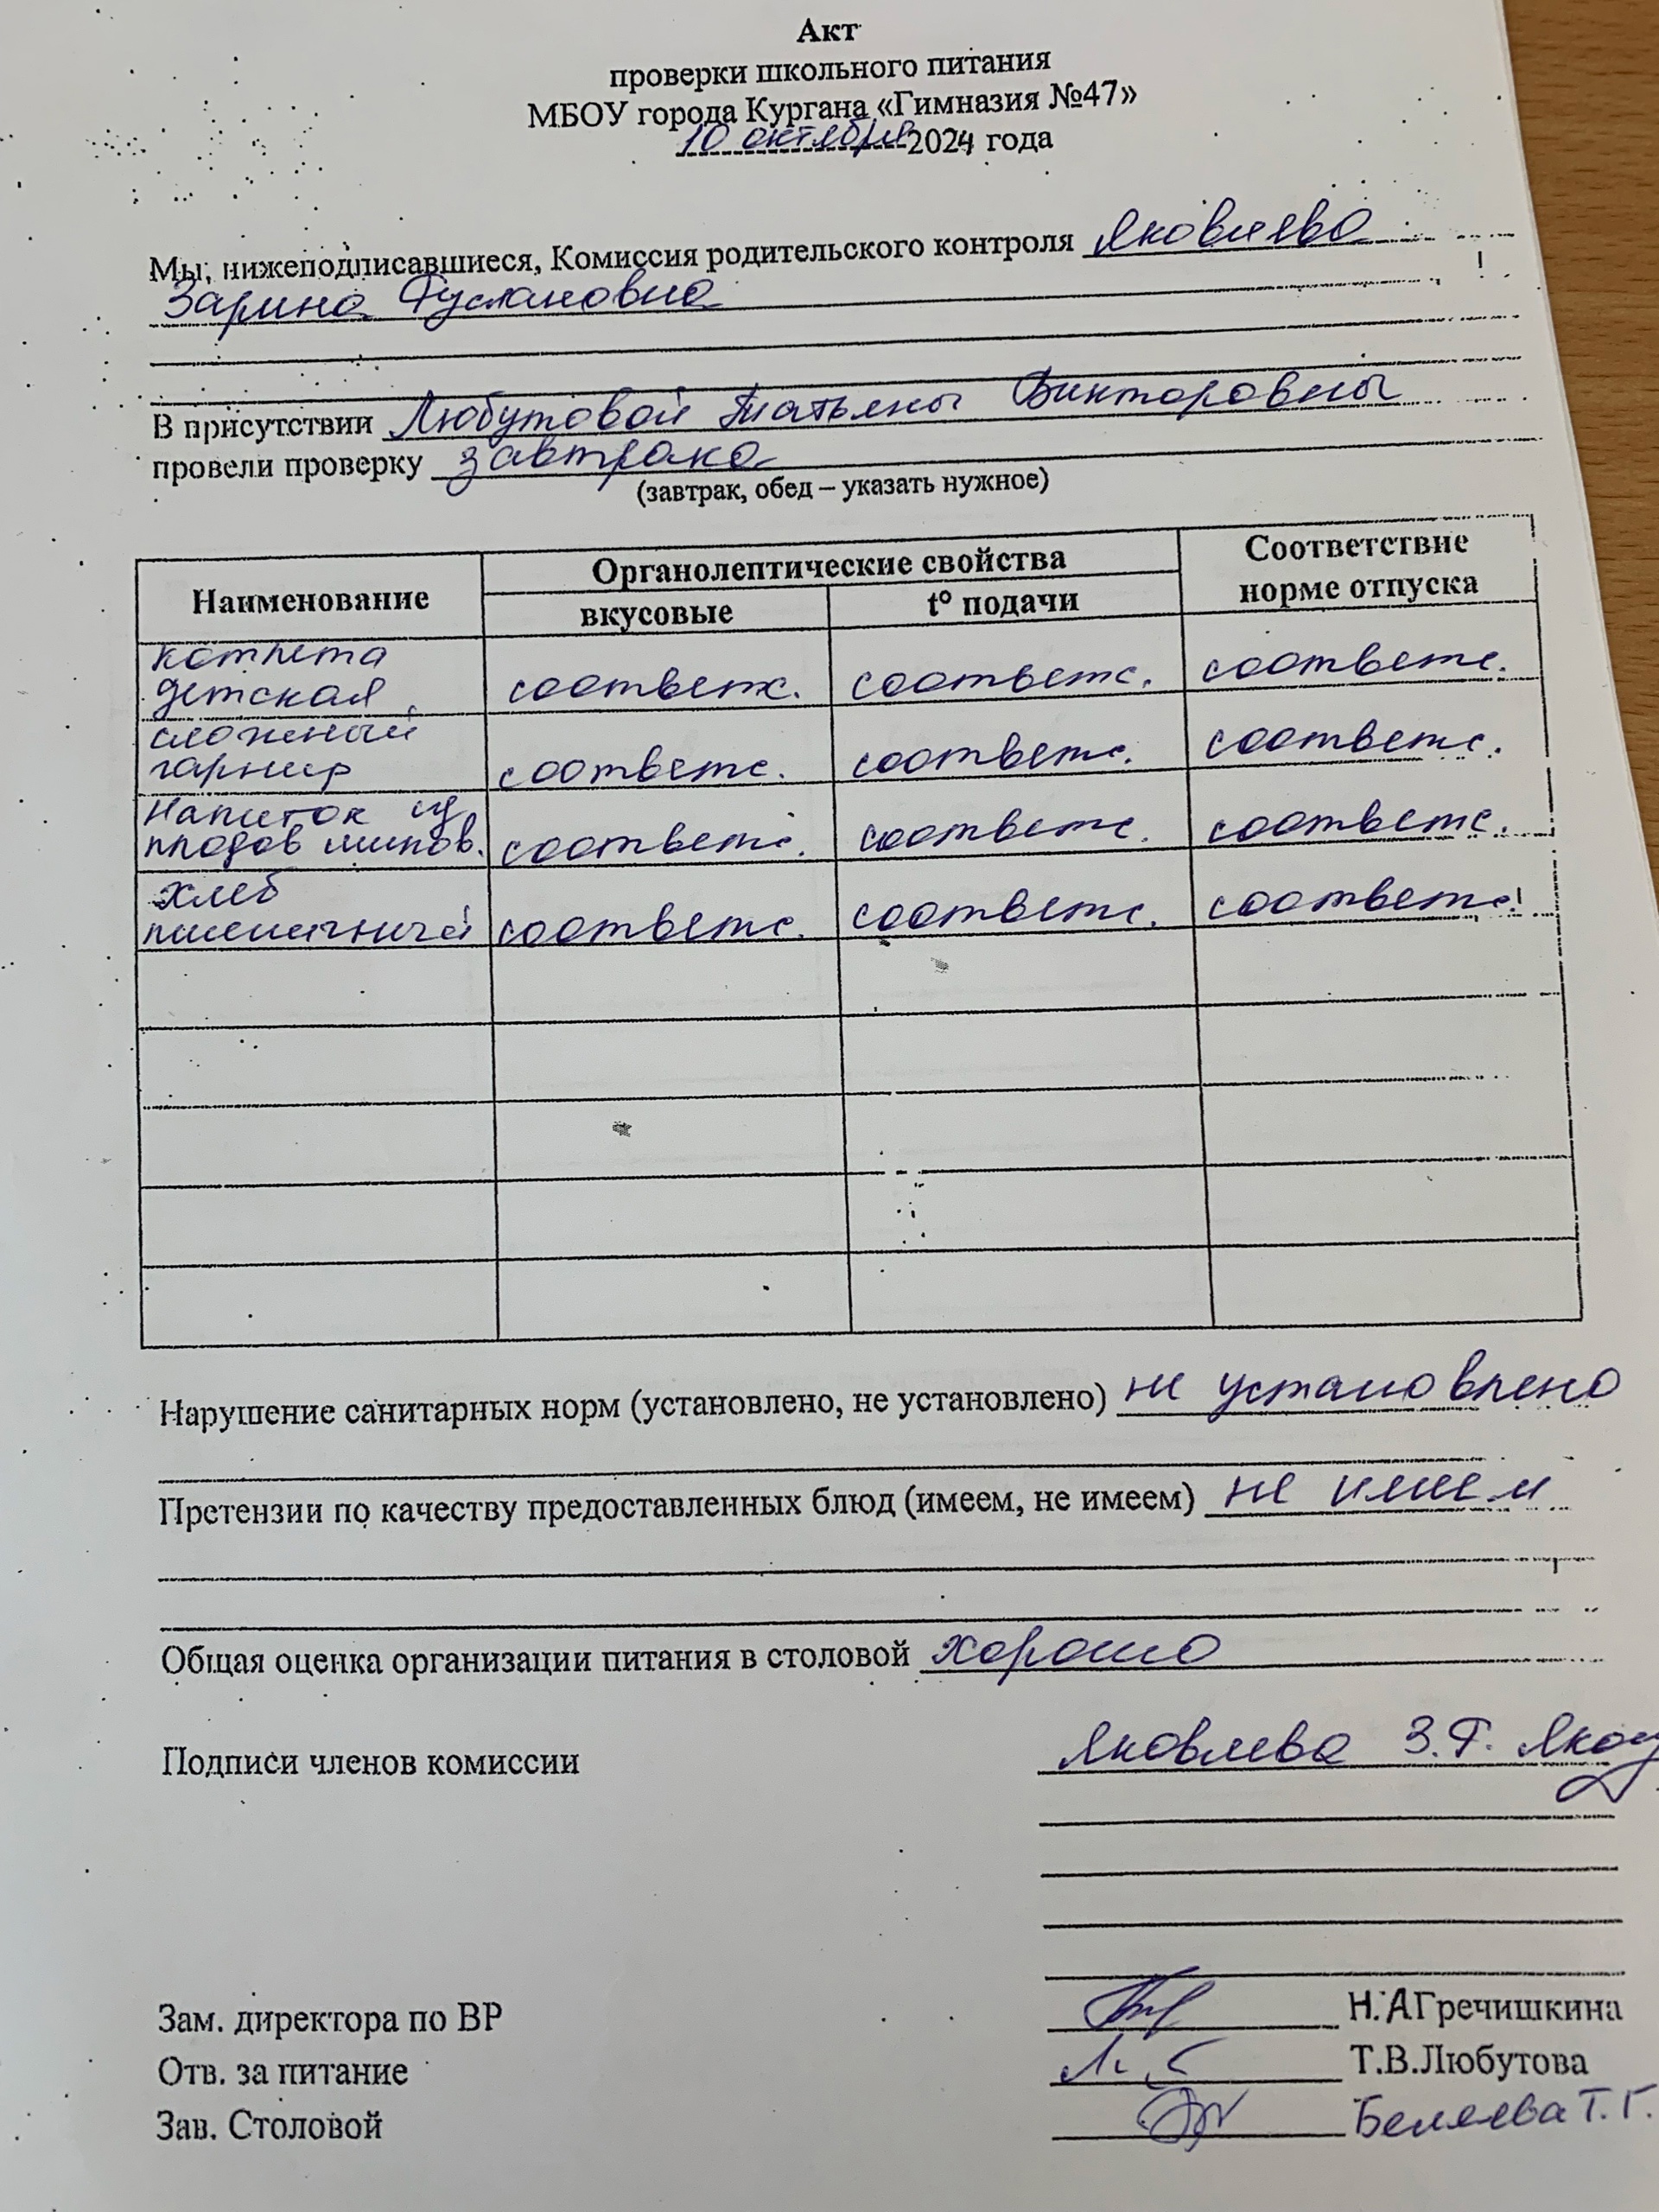 Акт
проверки школьного питания
МБОУ города Кургана «Гимназия №47»
10 октября 2024 года
Мы, нижеподписавшиеся, Комиссия родительского контроля Яковлева
Зарина Руслановна
В присутствии Любутовой Татьяны Викторовны
провели проверку завтрака
(завтрак, обед – указать нужное)
Наименование Органолептические свойства Соответствие норме отпуска
вкусовые t° подачи
котлета
детская соответс. соответс. соответс.
сложный
гарнир соответс. соответс. соответс.
Напиток из
плодов шипов. соответс. соответс. соответс.
хлеб
пшеничный соответс. соответс. соответс.
Нарушение санитарных норм (установлено, не установлено) не установлено
Претензии по качеству предоставленных блюд (имеем, не имеем) не имеем
Общая оценка организации питания в столовой хорошо
Подписи членов комиссии Яковлева З.Р.
Зам. директора по ВР Н.А Гречишкина
Отв. за питание Т.В.Любутова
Зав. Столовой Беляева Т.Г.